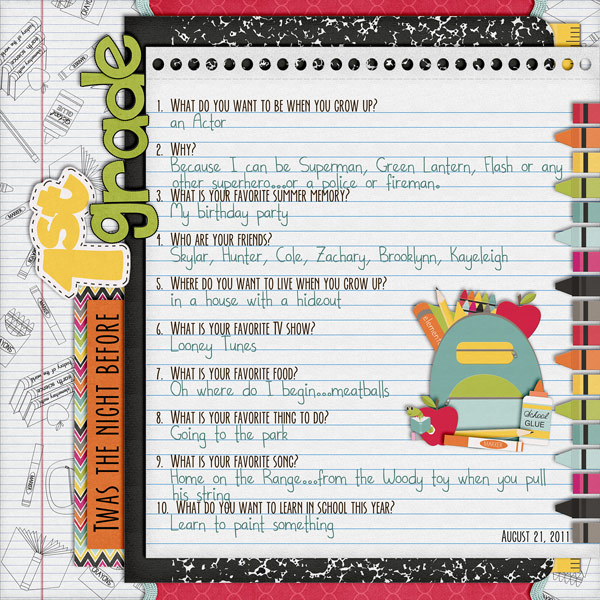 1st grade
TWAS THE NIGHT BEFORE
1. WHAT DO YOU WANT TO BE WHEN YOU GROW UP?
an Actor
2. WHY?
Because I can be Superman, Green Lantern, Flash or any
other superhero...or a police or fireman.
3. WHAT IS YOUR FAVORITE SUMMER MEMORY?
My birthday party
4. WHO ARE YOUR FRIENDS?
Skylar, Hunter, Cole, Zachary, Brooklynn, Kayeleigh
5. WHERE DO YOU WANT TO LIVE WHEN YOU GROW UP?
in a house with a hideout
6. WHAT IS YOUR FAVORITE TV SHOW?
Looney Tunes
7. WHAT IS YOUR FAVORITE FOOD?
Oh where do I begin...meatballs
8. WHAT IS YOUR FAVORITE THING TO DO?
Going to the park
9. WHAT IS YOUR FAVORITE SONG?
Home on the Range...from the Woody toy when you pull
his string
10. WHAT DO YOU WANT TO LEARN IN SCHOOL THIS YEAR?
Learn to paint something
AUGUST 21, 2011
School
GLUE